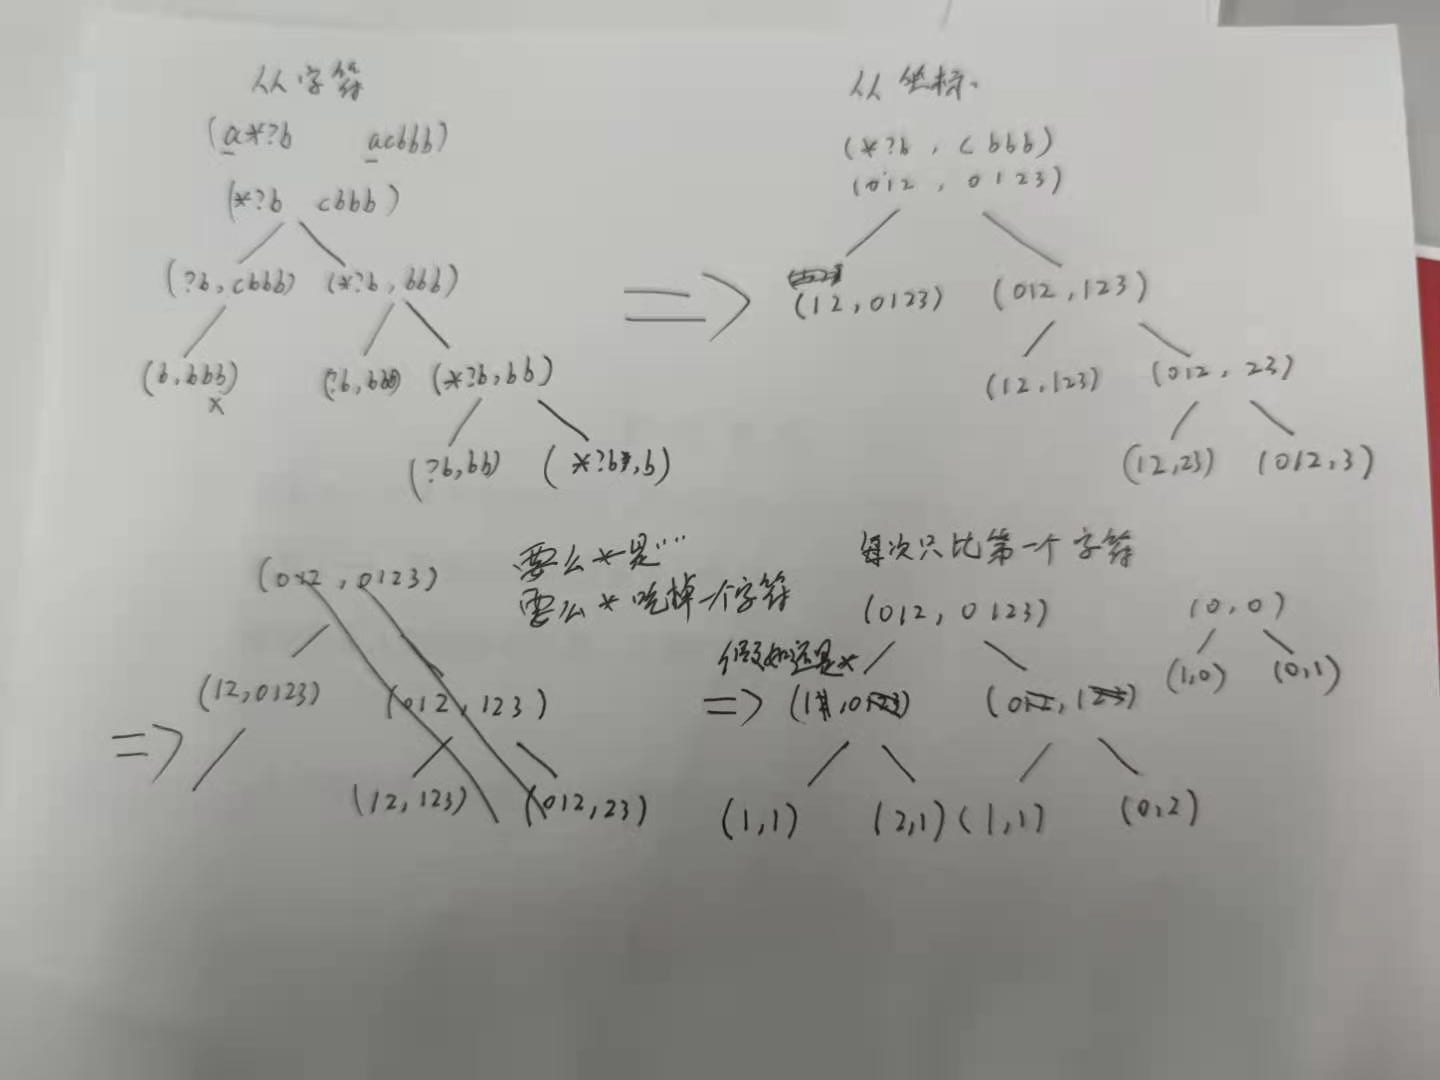 从字符
(a*?b acbbb)
(*?b cbbb)
(?b,cbbb) (*?b,bbb)
(b,bbb)
x
(?b,bbb) (*?b,bb)
(?b,bb) (*?b,b)
从坐标
(*?b,cbbb)
(012,0123)
(12,0123) (012,123)
(12,123) (012,23)
(12,23) (012,3)
(012,0123)
(12,0123) (012,123)
(12,123) (012,23)
要么*是""
要么*吃掉一个字符
每次只比第一个字符
(012,0123)
假如还是*
(1,0) (0,1)
(1,1) (2,1) (1,1) (0,2)
(0,0)
(1,0) (0,1)